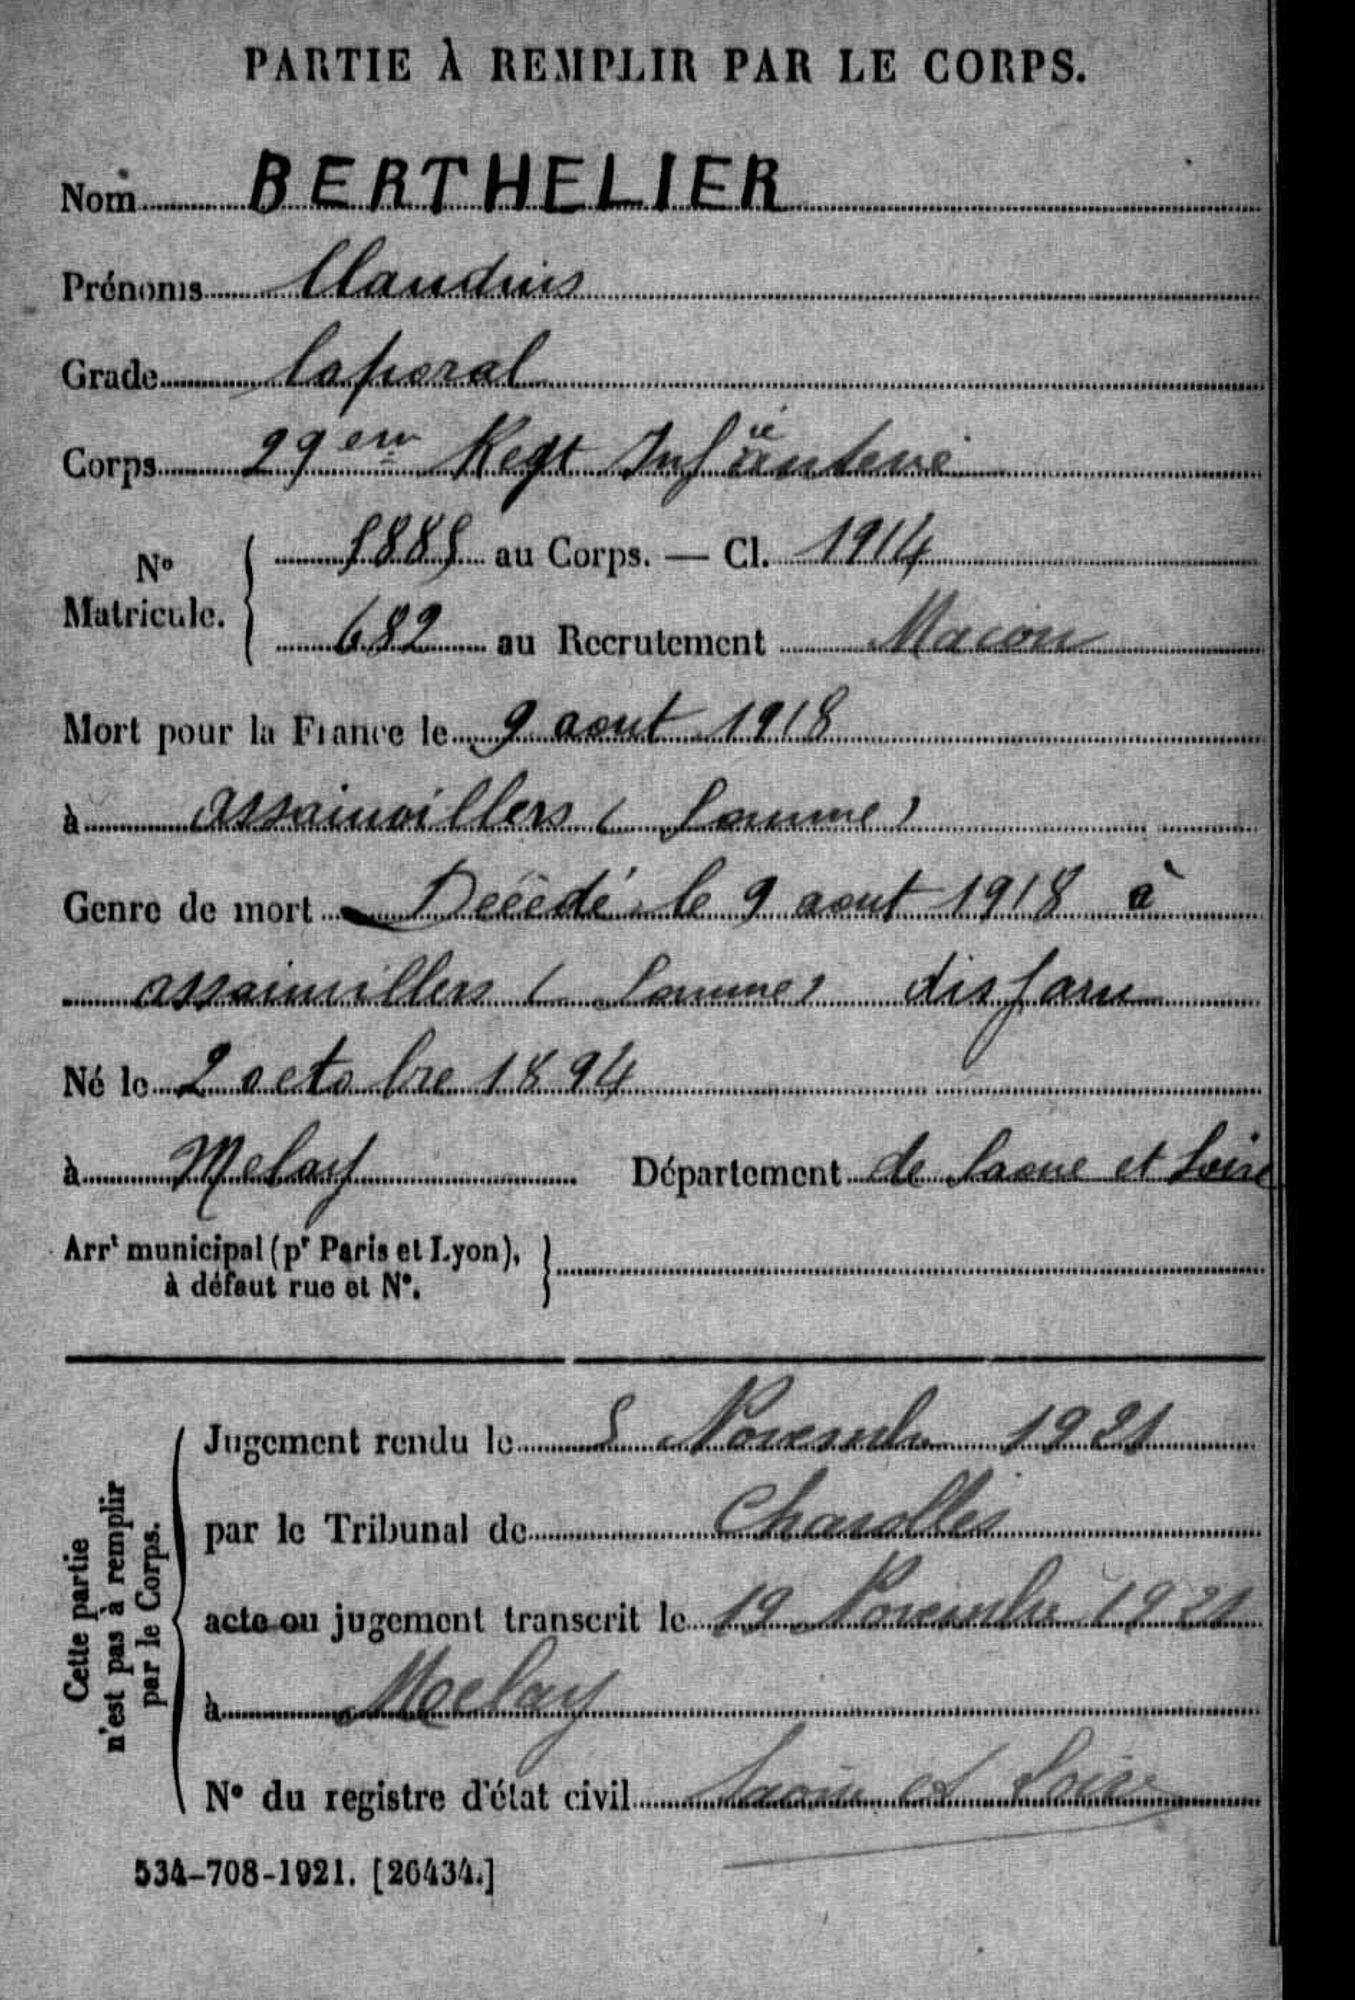 PARTIE À REMPLIR PAR LE CORPS.
Nom BERTHELIER
Prénoms Claudius
Grade Caporal
Corps 29em Regt Infanterie
No Matricule. { 5885 au Corps. — Cl. 1914
682 au Recrutement Macon
Mort pour la France le 9 aout 1918
à assainvillers (Somme)
Genre de mort Décédé le 9 aout 1918 à
assainvillers (Somme) disparu
Né le 2 octobre 1894
à Melay Département de Saone et Loire
Arrt municipal (pr Paris et Lyon), }
à défaut rue et No.
Cette partie
n'est pas à remplir
par le Corps.
Jugement rendu le 5 Novembre 1921
par le Tribunal de Charolles
acte ou jugement transcrit le 19 Novembre 1921
à Melay
No du registre d'état civil Saone et Loire
534-708-1921. [26434.]